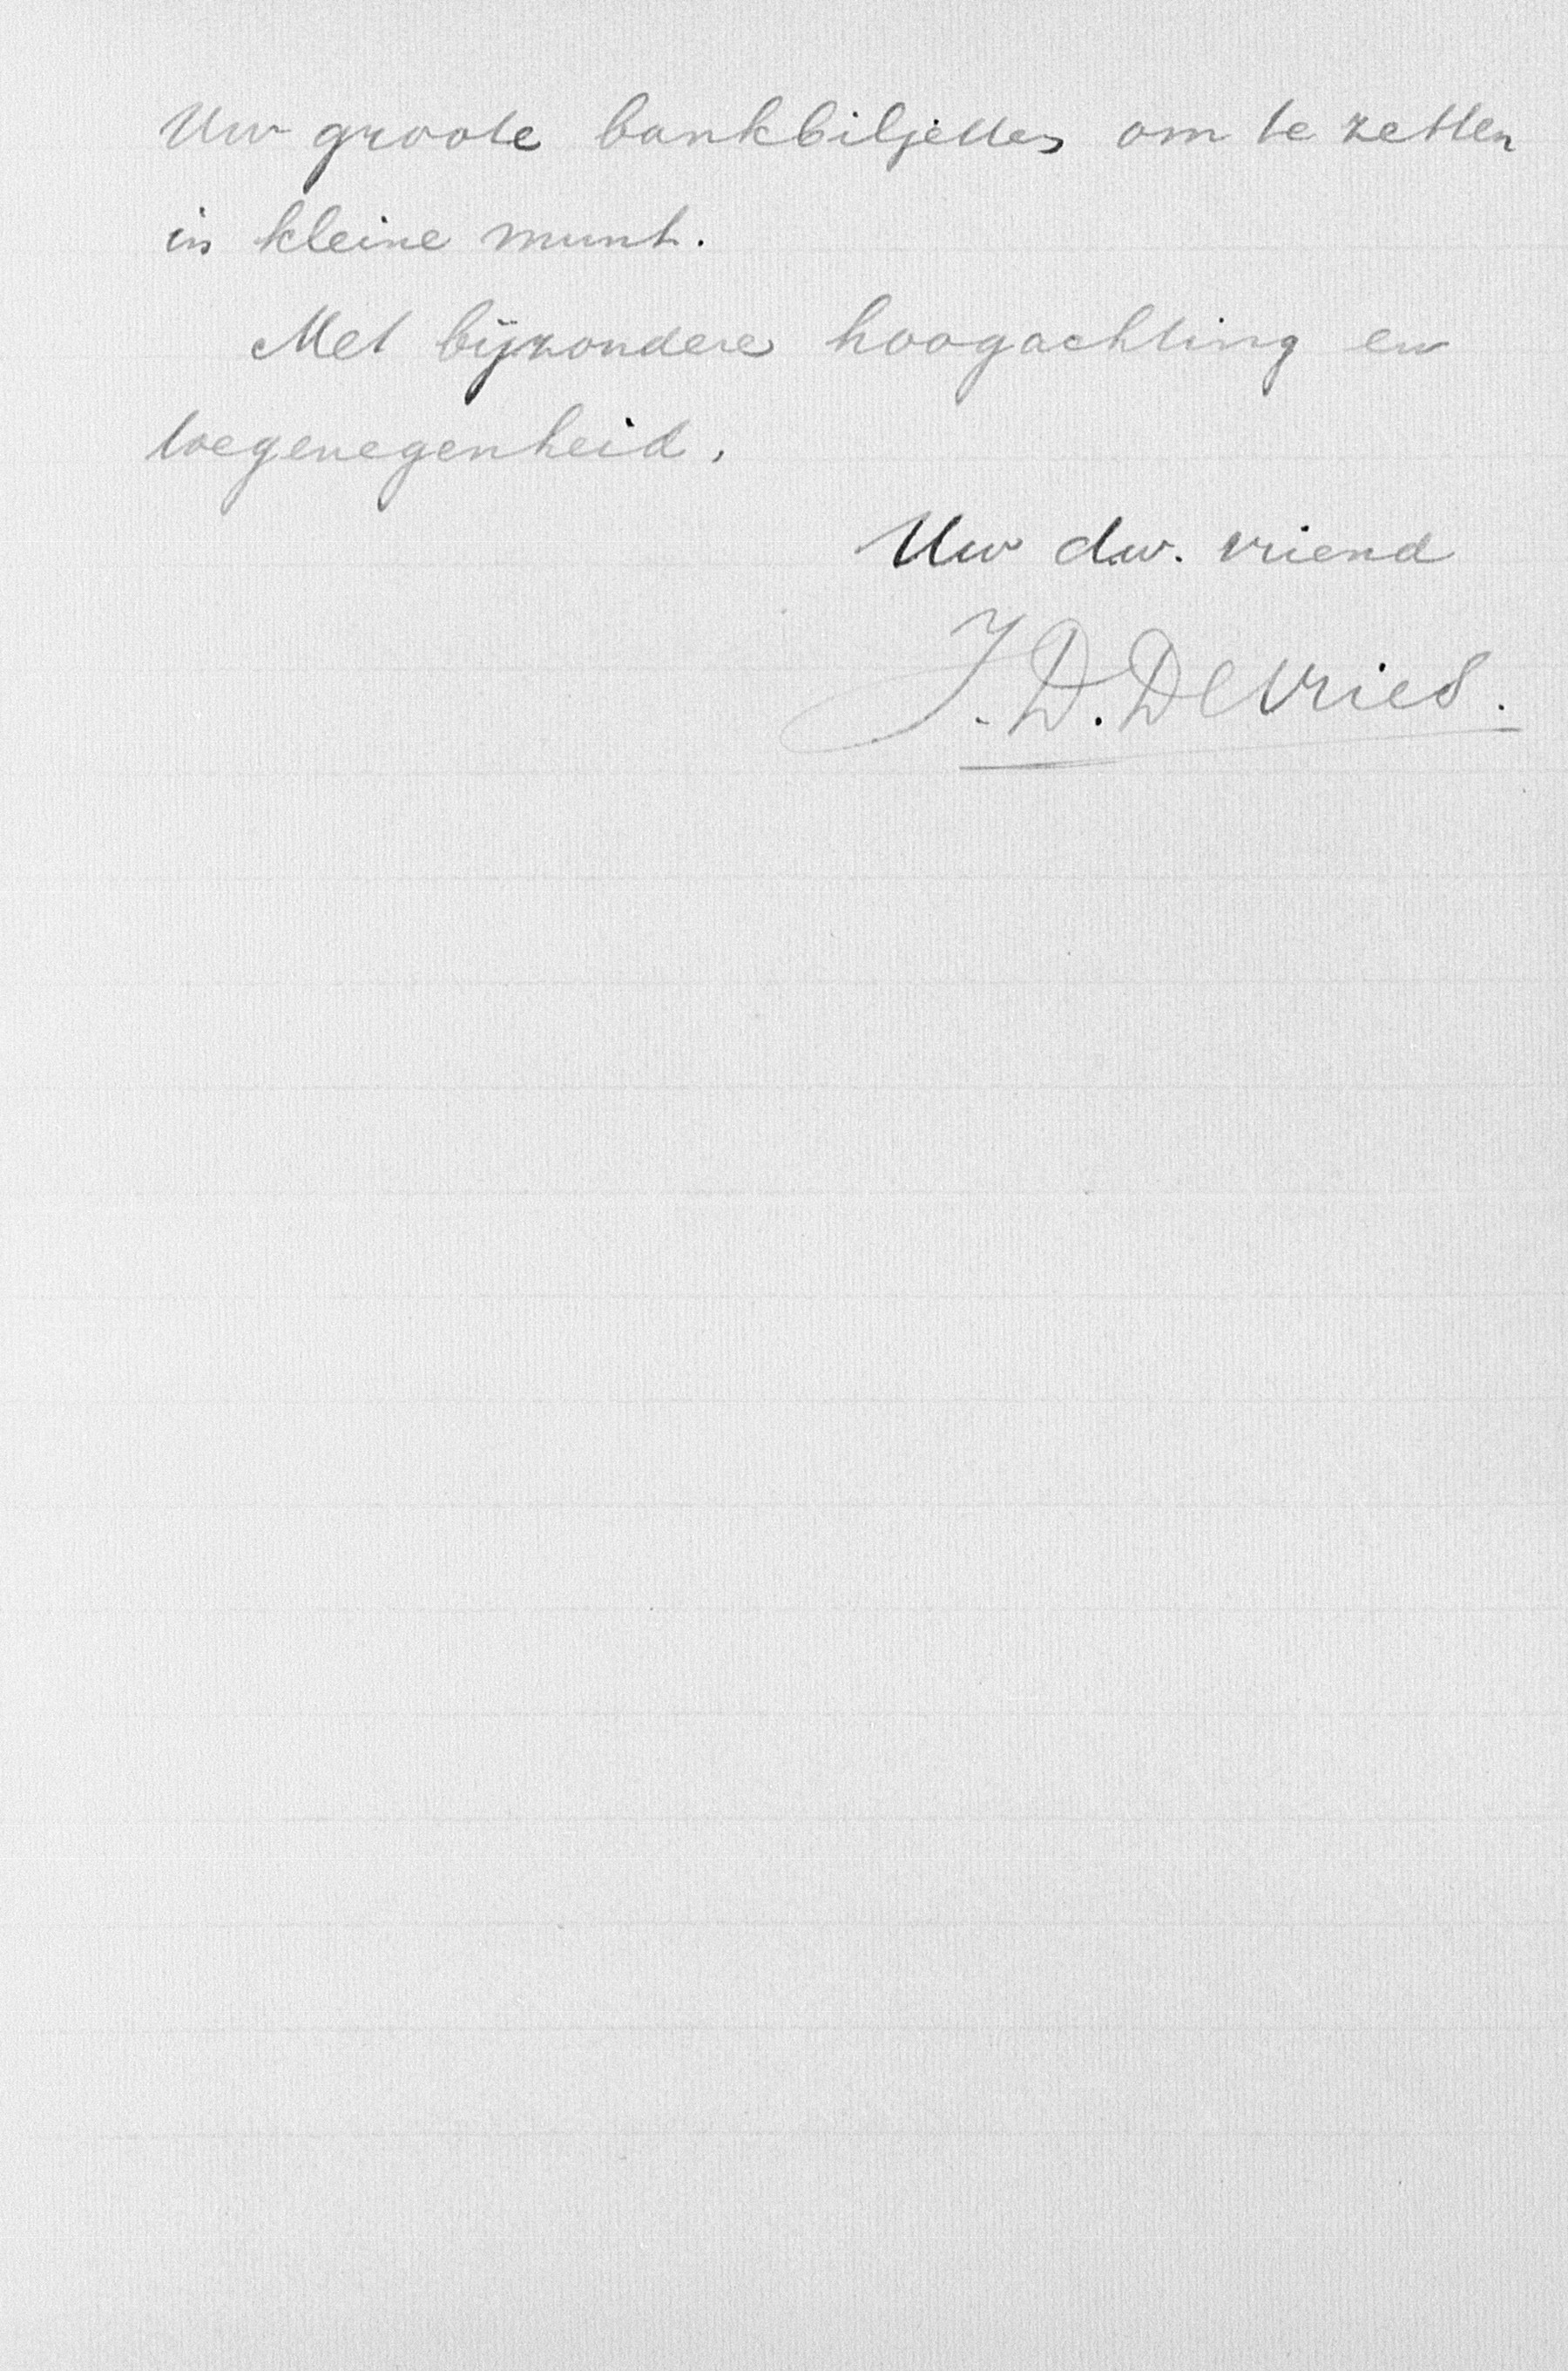 Uw groote bankbiljetten om te zetten
in kleine munt.
Met bijzondere hoogachting en
toegenegenheid,
Uw dw. vriend
J. D. De Vries.